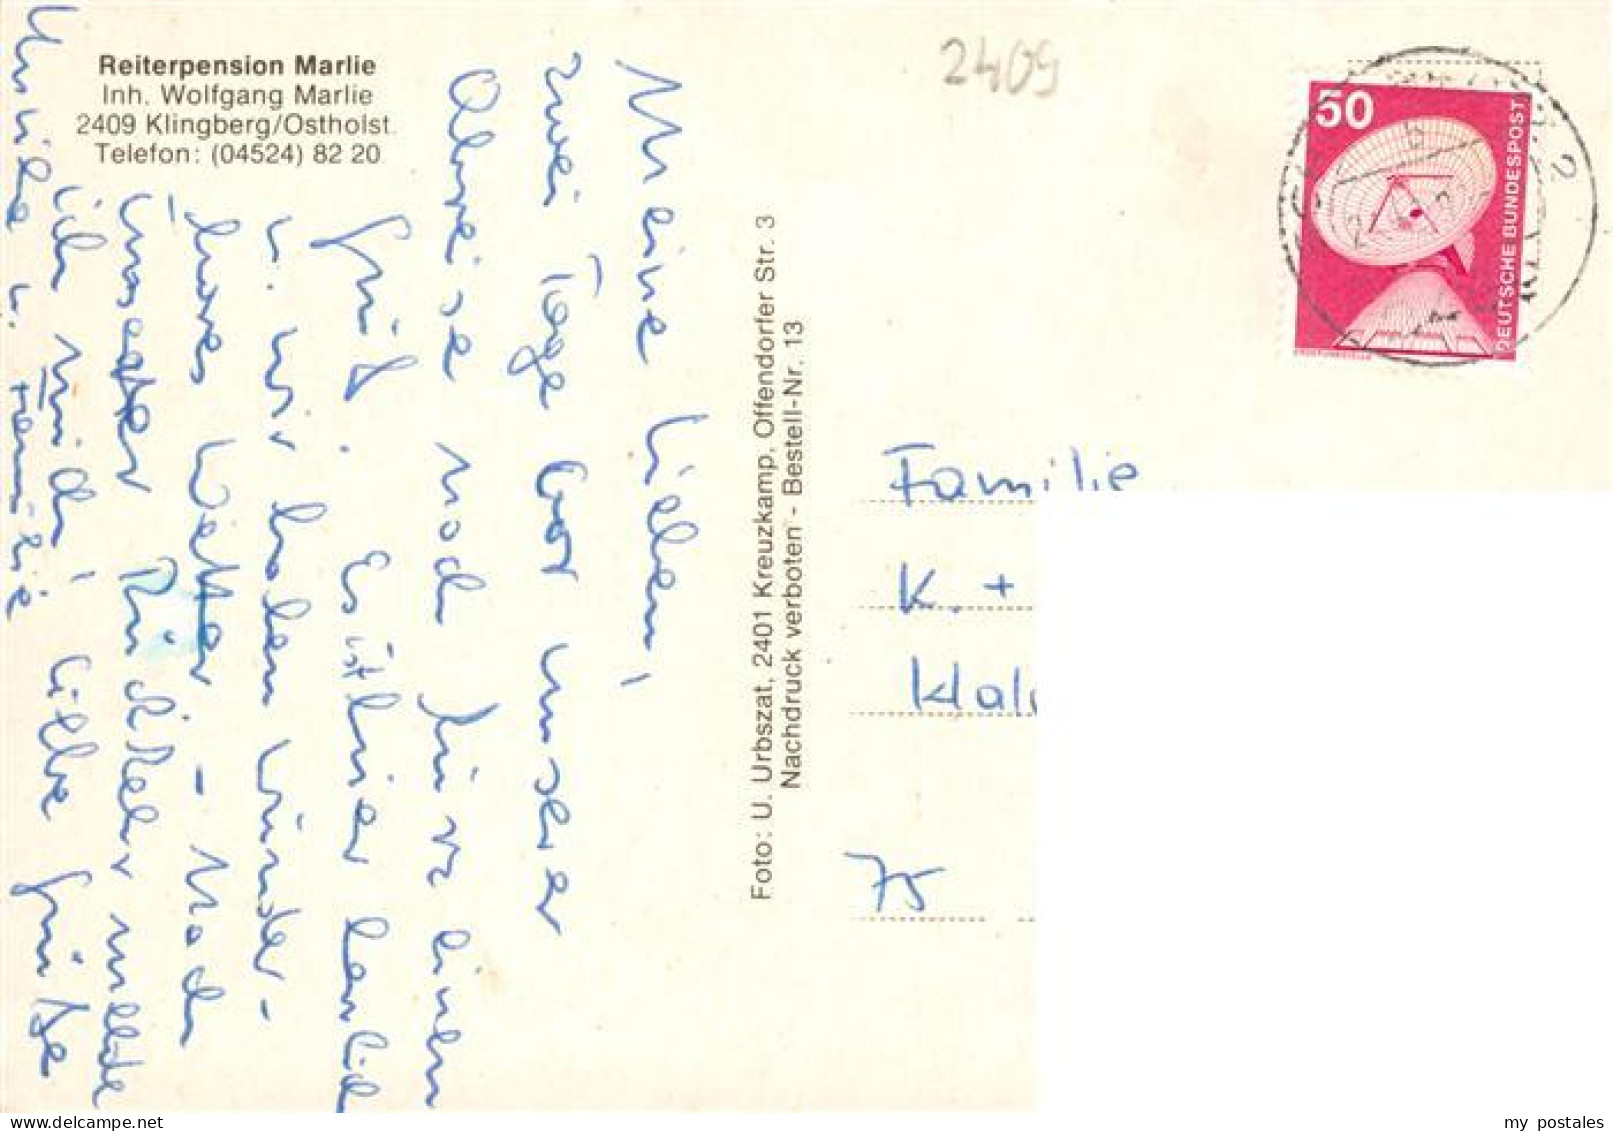 Reiterpension Marlie
Inh. Wolfgang Marlie
2409 Klingberg/Ostholst.
Telefon: (04524) 82 20
Meine Lieben!
zwei Tage vor unserer
Abreise noch kurz einen
Gruß. Es ist hier herrlich
u. wir haben wunder-
bares Wetter - Nach
unserer Rückkehr melde
ich mich! Liebe Grüße
u. Familie
Foto: U. Urbszat, 2401 Kreuzkamp, Offendorfer Str. 3
Nachdruck verboten - Bestell-Nr. 13
2409
50
DEUTSCHE BUNDESPOST
Familie
K. +
75
my postales
delcampe.net